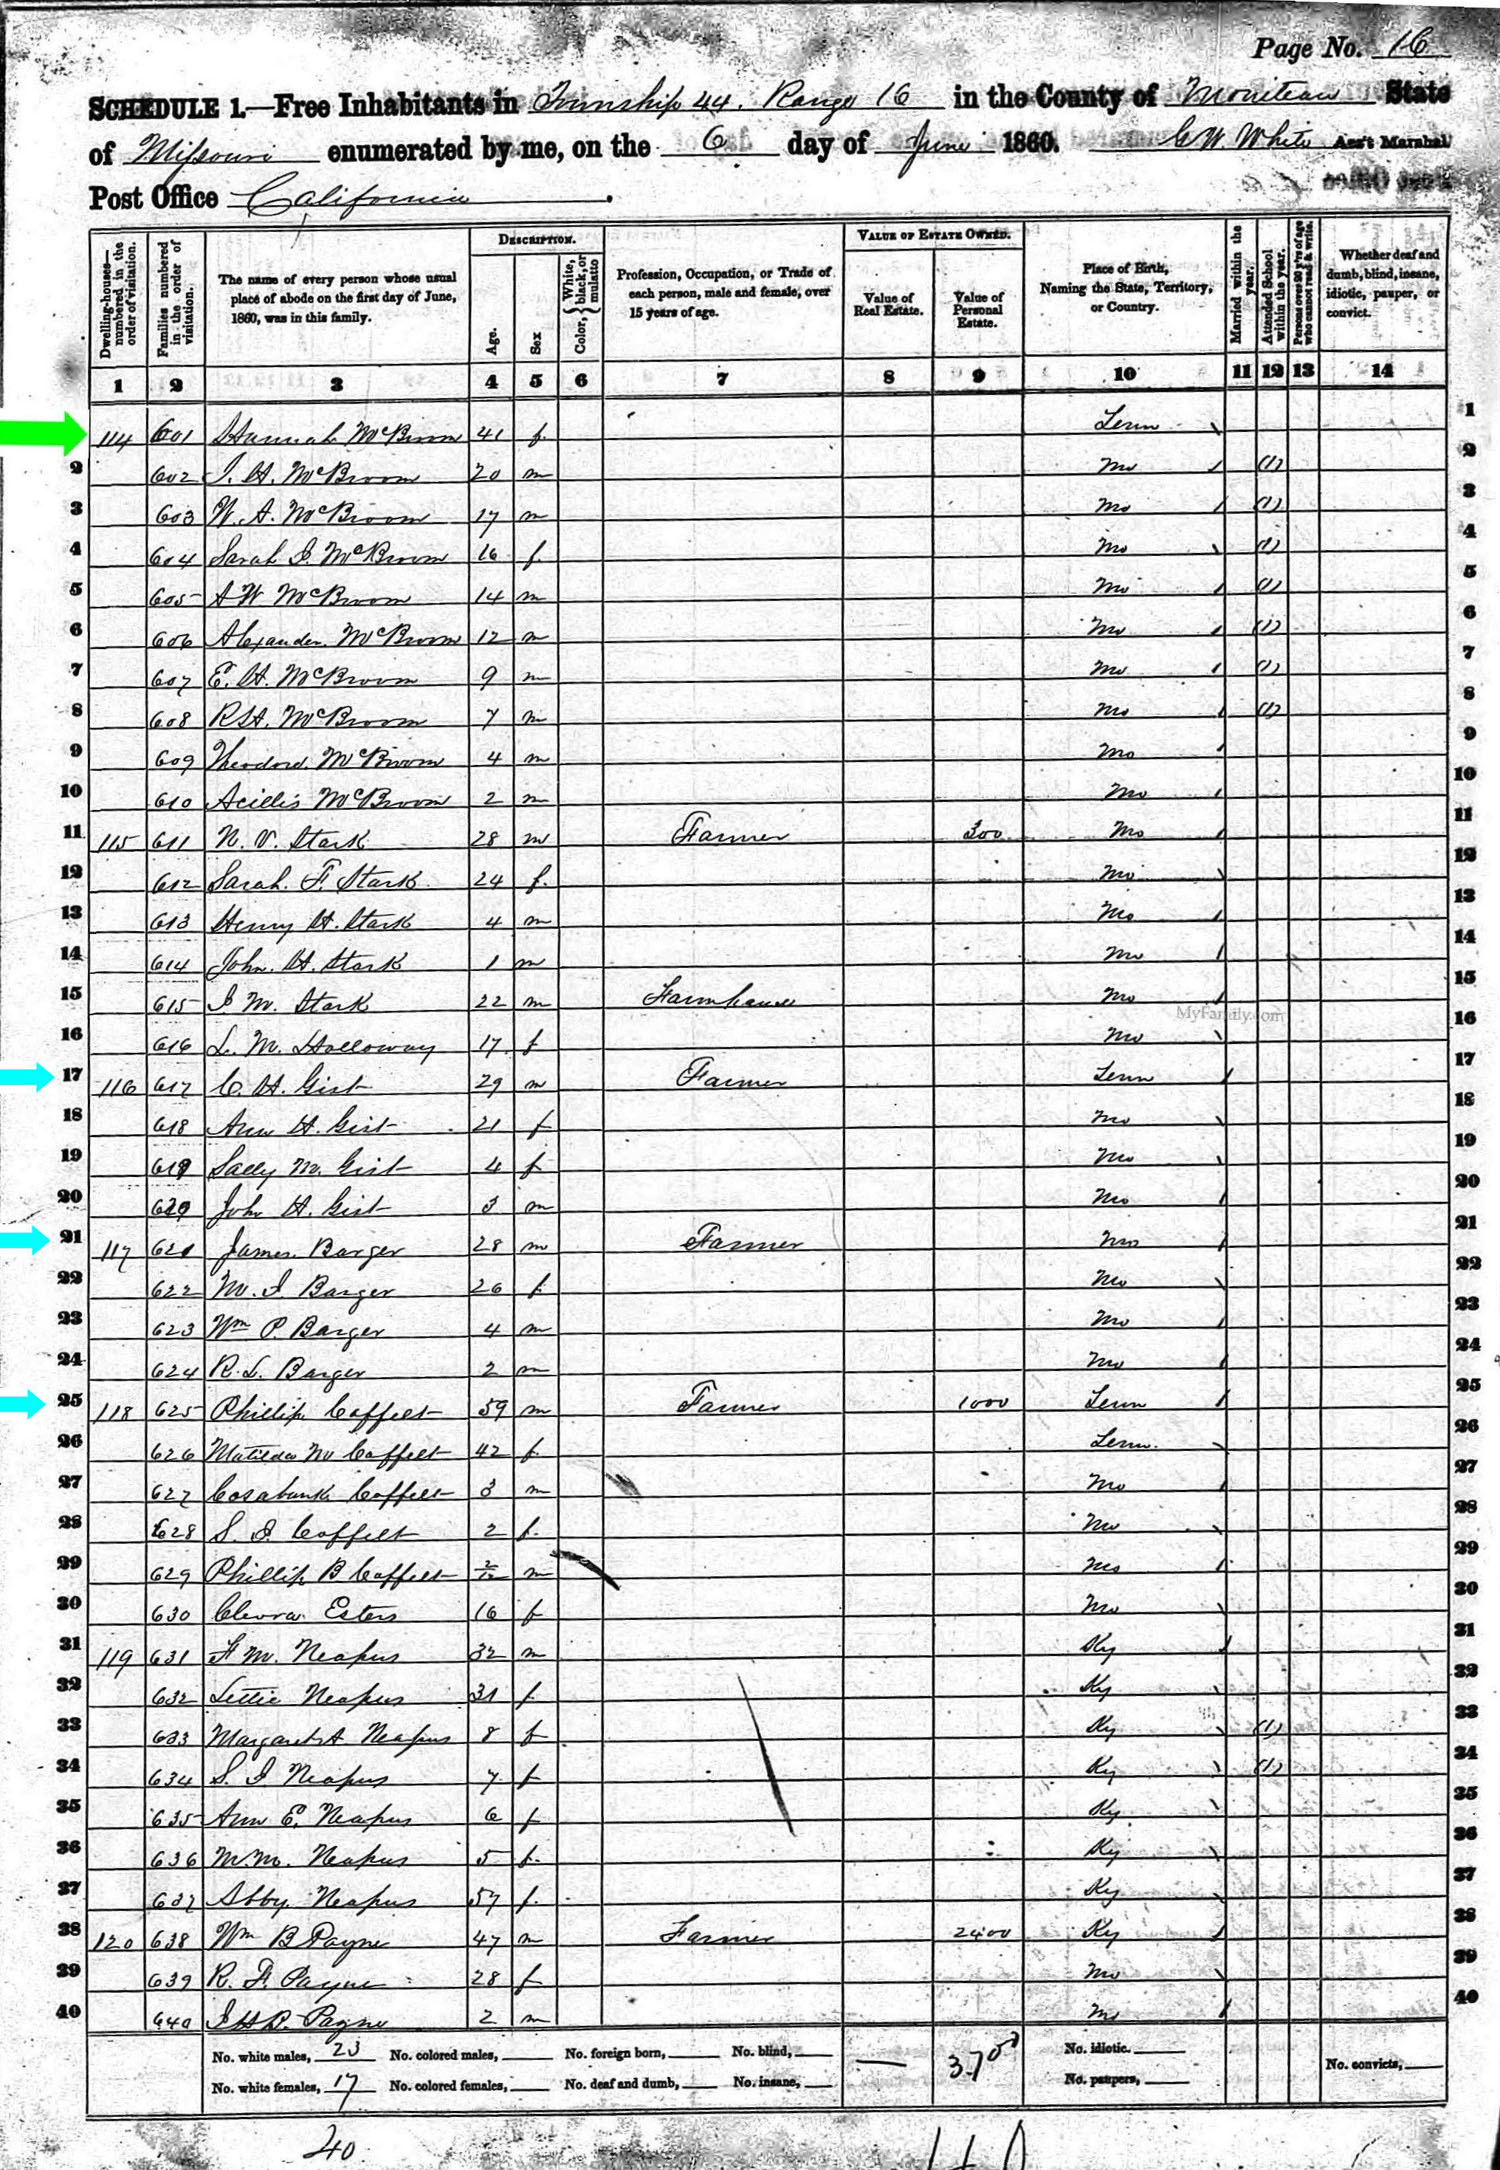 Page No. 16
SCHEDULE 1.—Free Inhabitants in Township 44. Range 16 in the County of Moniteau State
of Missouri enumerated by me, on the 6 day of June 1860. C W White Ass't Marshal
Post Office California.
DESCRIPTION. VALUE OF ESTATE OWNED.
Dwelling-houses—numbered in the order of visitation.
Families numbered in the order of visitation.
The name of every person whose usual place of abode on the first day of June, 1860, was in this family.
Age.
Sex
Color, { White, black, or mulatto
Profession, Occupation, or Trade of each person, male and female, over 15 years of age.
Value of Real Estate.
Value of Personal Estate.
Place of Birth, Naming the State, Territory, or Country.
Married within the year.
Attended School within the year.
Persons over 20 y'rs of age who cannot read & write.
Whether deaf and dumb, blind, insane, idiotic, pauper, or convict.
1 2 3 4 5 6 7 8 9 10 11 12 13 14
114 601 Hannah McBroom 41 f. Tenn 1
2 602 J. H. McBroom 20 m Mo (1) 2
3 603 W. A. McBroom 17 m Mo (1) 3
4 604 Sarah J. McBroom 16 f. Mo (1) 4
5 605 A W McBroom 14 m Mo (1) 5
6 606 Alexander McBroom 12 m Mo (1) 6
7 607 E. H. McBroom 9 m Mo (1) 7
8 608 R H. McBroom 7 m Mo (1) 8
9 609 Theodord McBroom 4 m Mo 9
10 610 Acillis McBroom 2 m Mo 10
11 115 611 N. V. Stark 28 m Farmer 300 Mo 11
12 612 Sarah. F. Stark 24 f. Mo 12
13 613 Henry H. Stark 4 m Mo 13
14 614 John. H. Stark 1 m Mo 14
15 615 J M. Stark 22 m Mo 15
MyFamily.com
16 616 L. M. Holloway 17 f Mo 16
17 116 617 C. H. Gist 29 m Farmer Tenn 17
18 618 Ann H. Gist 21 f Mo 18
19 619 Sally M. Gist 4 f Mo 19
20 620 John H. Gist 3 m Mo 20
21 117 621 James Barger 28 m Farmer Mo 21
22 622 M. J Barger 26 f. Mo 22
23 623 Wm P Barger 4 m Mo 23
24 624 R. L. Barger 2 m Mo 24
25 118 625 Phillip Coffelt 59 m Farmer 1000 Tenn 25
26 626 Matilda M Coffelt 42 f. Tenn. 26
27 627 Cosabank Coffelt 3 m Mo 27
28 628 S. J. Coffelt 2 f. Mo 28
29 629 Phillip B Coffelt 2/12 m Mo 29
30 630 Esters 16 f Mo 30
31 119 631 F M. Neapus 32 m Ky 31
32 632 Lettie Neapus 31 f. Ky 32
33 633 Margaret A Neapus 8 f Ky (1) 33
34 634 S. J Neapus 7 f Ky (1) 34
35 635 Ann E. Neapus 6 f Ky 35
36 636 M. M. Neapus 5 f. Ky 36
37 637 Abby. Neapus 57 f. Ky 37
38 120 638 Wm B Payne 47 m Farmer 2400 Ky 38
39 639 R. F. Payne 28 f Mo 39
40 640 J H B. Payne 2 m Mo 40
No. white males, 23 No. colored males, No. foreign born, No. blind, — 3700 No. idiotic. No. convicts,
No. white females, 17 No. colored females, No. deaf and dumb, No. insane, No. paupers,
40